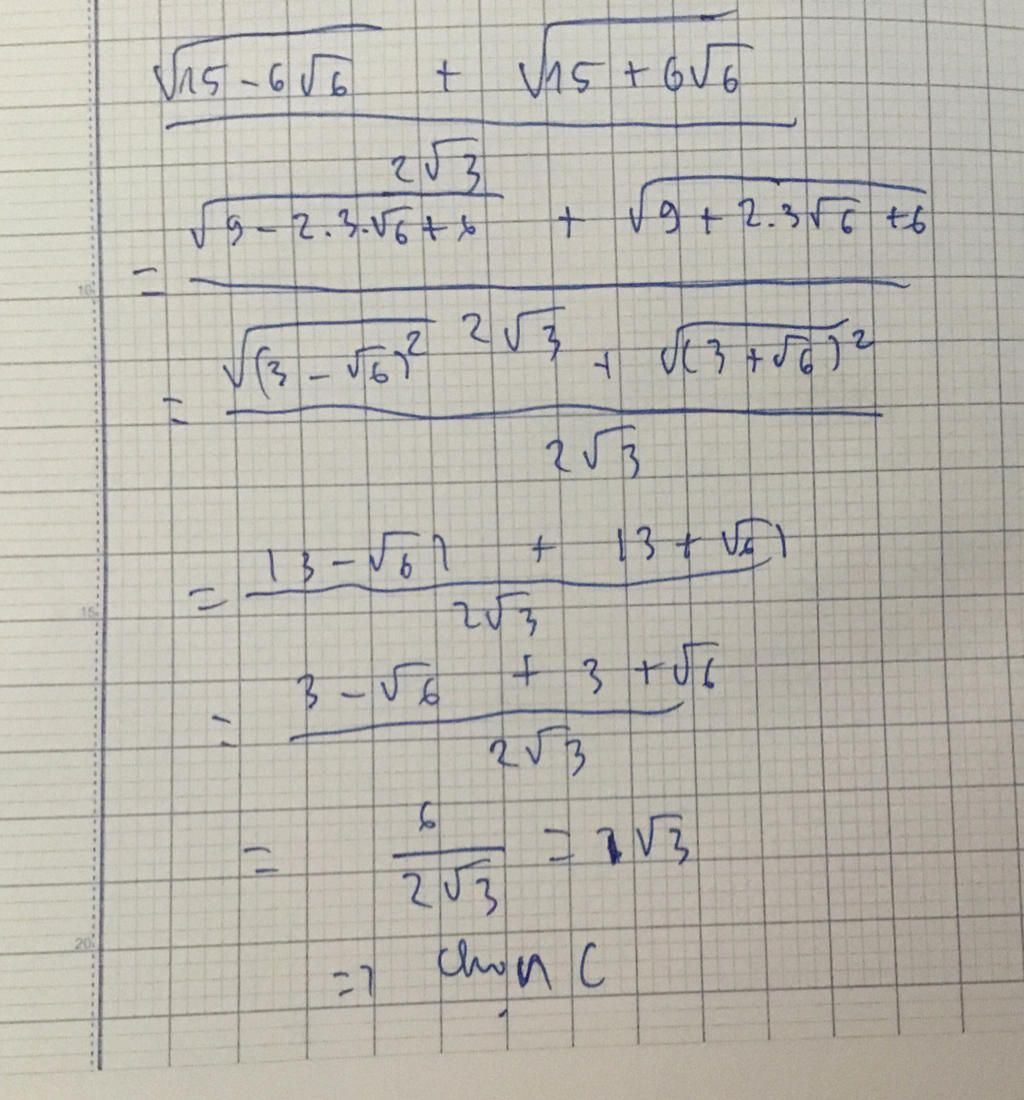 √(15 - 6√6) + √(15 + 6√6)
2√3
√(9 - 2.3.√6 + 6) + √(9 + 2.3√6 + 6)
=
2√3
√((3 - √6)²) + √((3 + √6)²)
=
2√3
= |3 - √6| + |3 + √6|
2√3
= 3 - √6 + 3 + √6
2√3
= 6 / 2√3 = √3
=> Chọn C
10
15
20